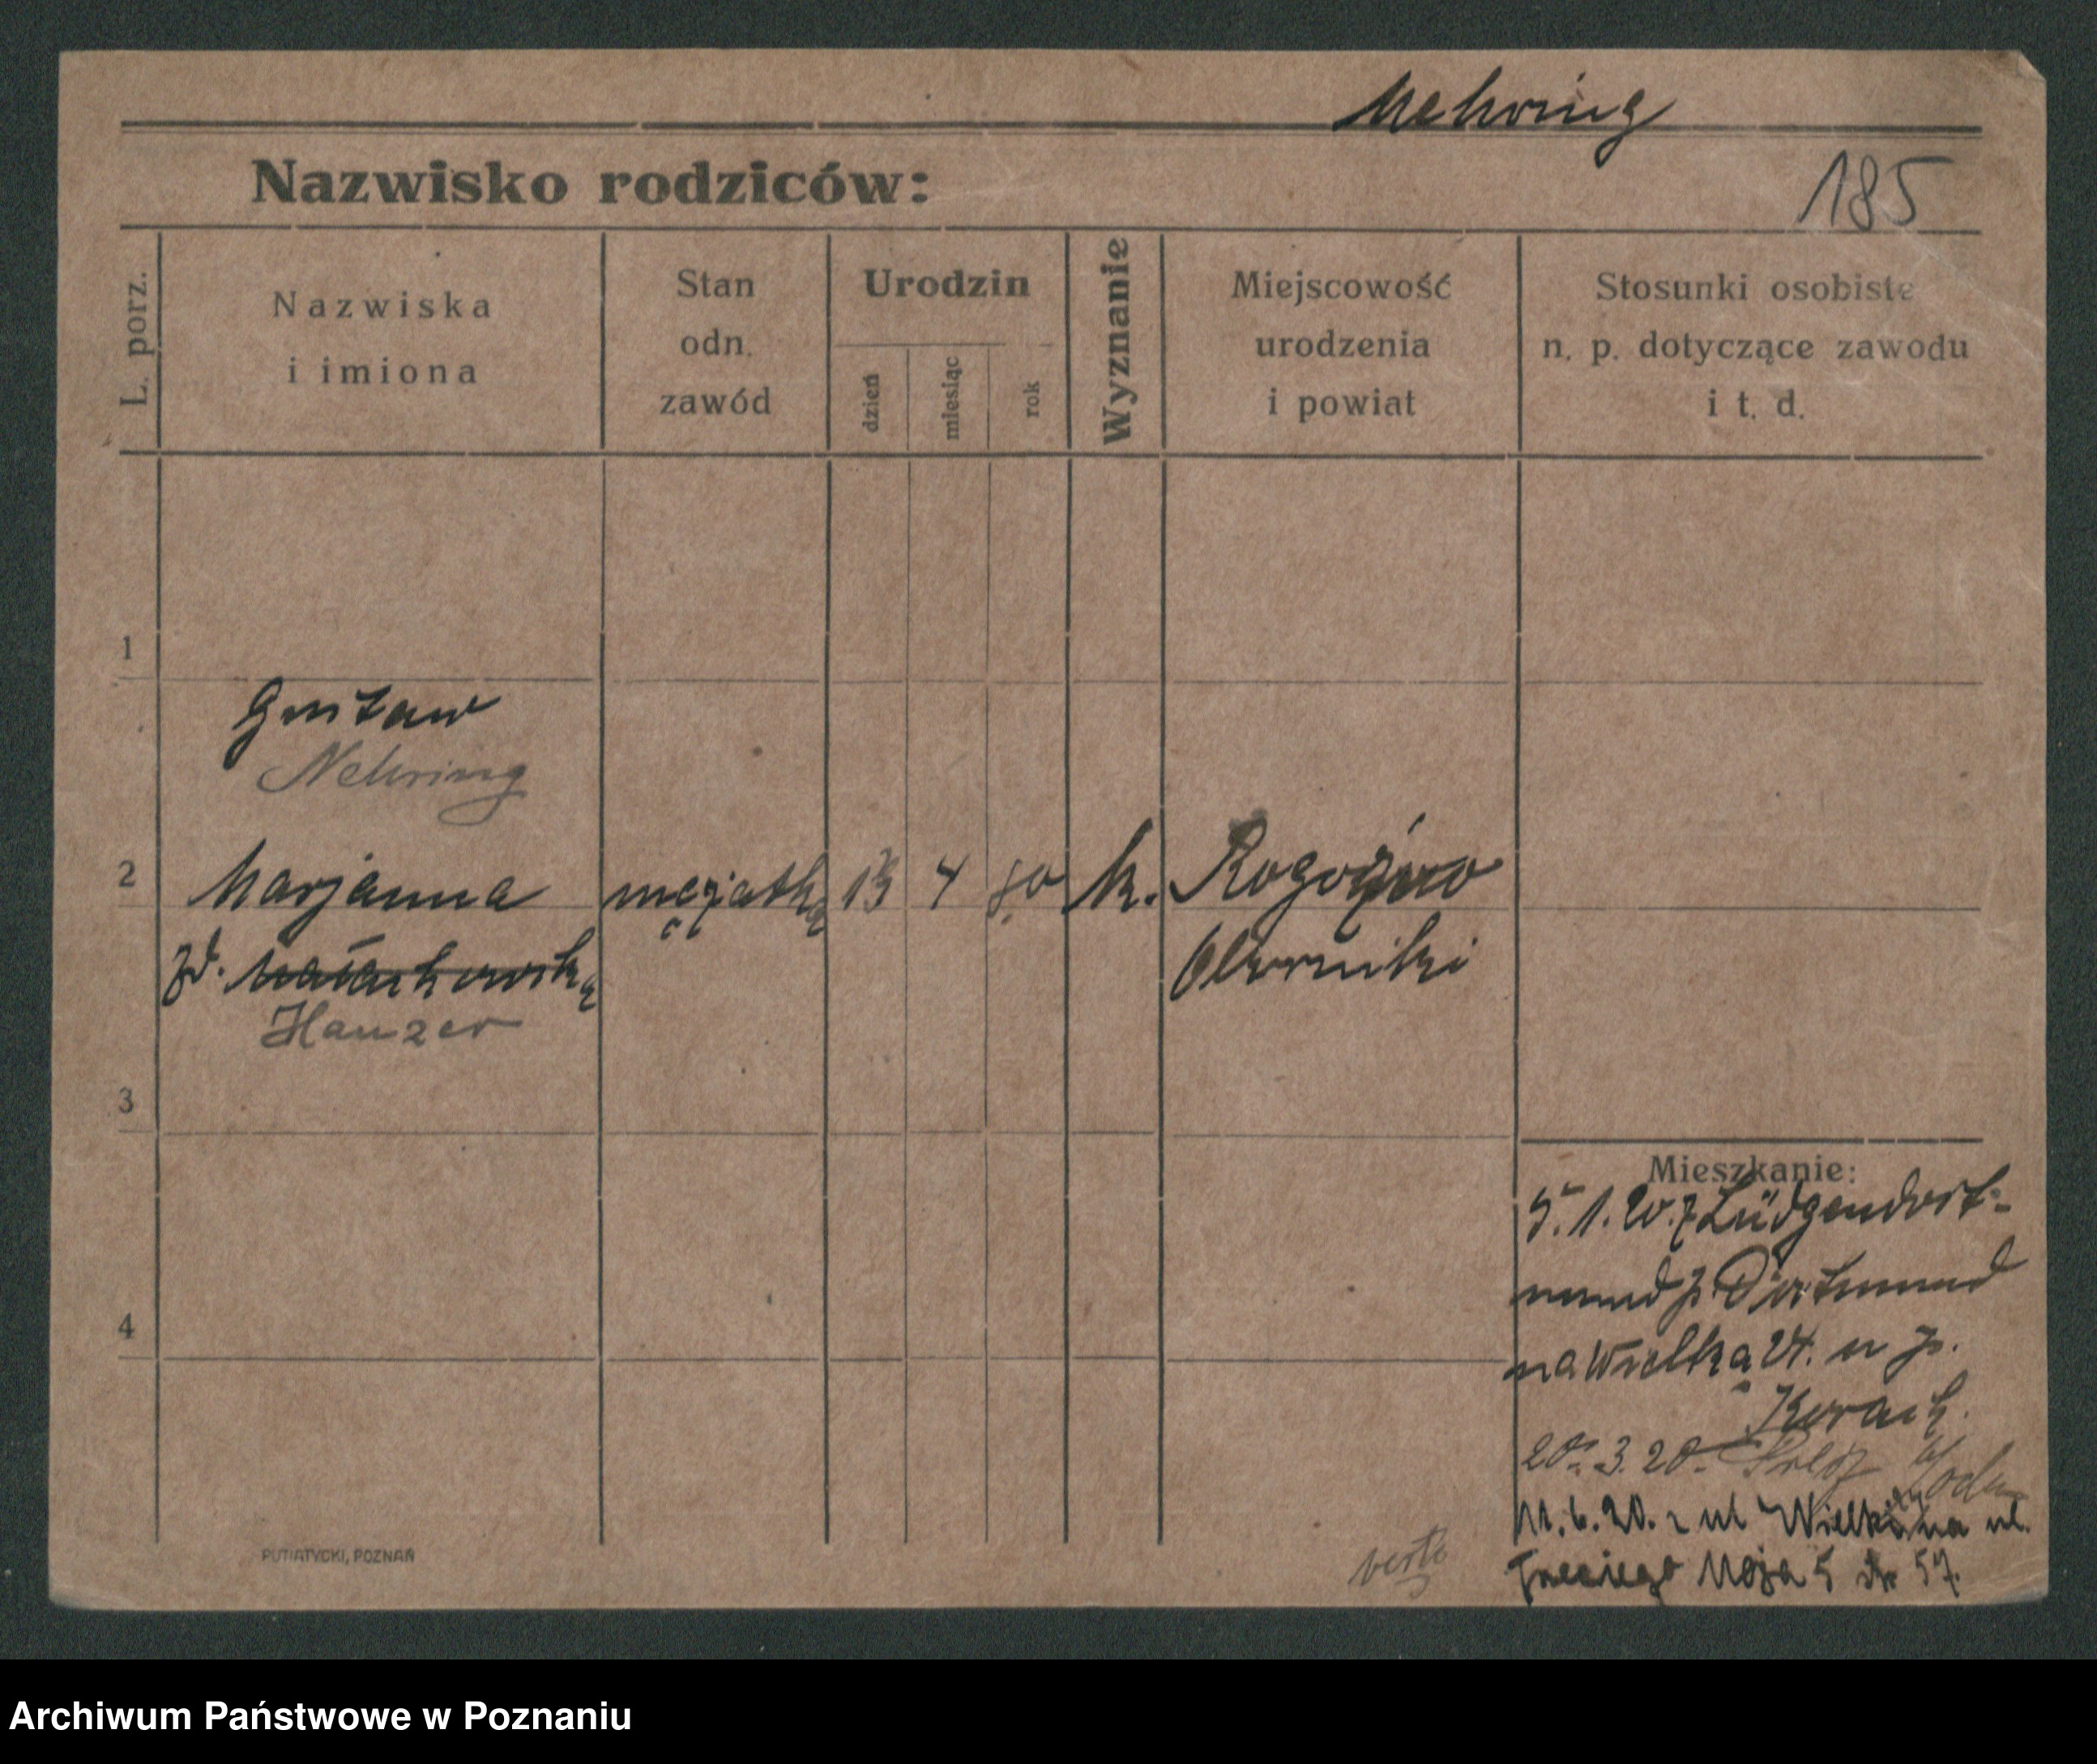 Nehring
Nazwisko rodziców:
185
L. porz.
Nazwiska
i imiona
Stan
odn.
zawód
Urodzin
dzień
miesiąc
rok
Wyznanie
Miejscowość
urodzenia
i powiat
Stosunki osobiste
n. p. dotyczące zawodu
i t. d.
1
Gustaw
Nehring
2
Marjanna mężatką 13 4 80 k. Rogoźno
zd. Małachowską Oborniki
Hauzer
3
Mieszkanie:
5. 1. 20. z Lüdgendort-
mund p. Dortmund
na Wielką 24. u p.
4
20. 3. 20.
11. 6. 20. z ul Wielkiej na ul.
Trzeciego Maja 5 57.
verte
PUTIATYCKI, POZNAŃ
Archiwum Państwowe w Poznaniu